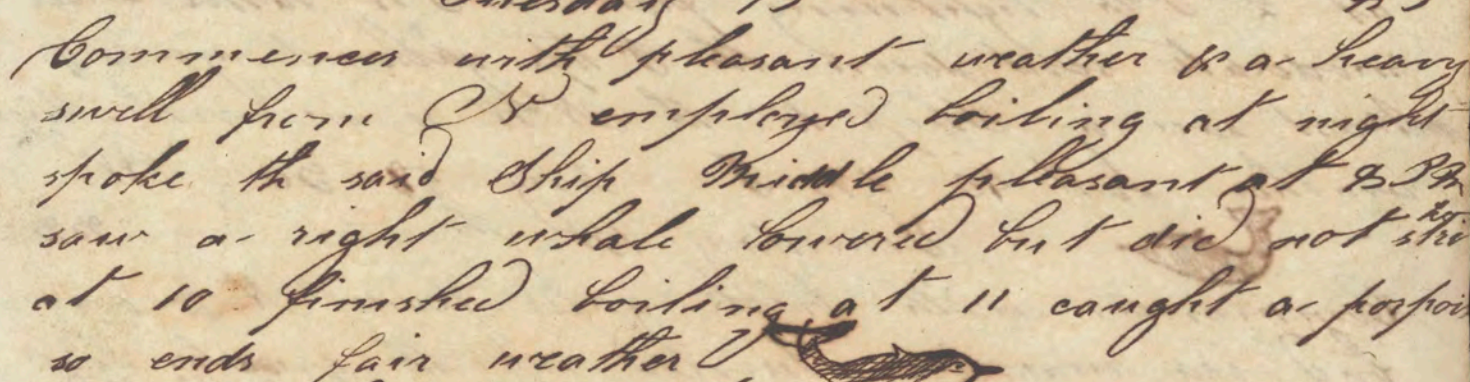 Tuesday 15
Commences with pleasant weather & a heavy
swell from N employed boiling at night
spoke th said Ship Middle pleasant at 8 PM
saw a right whale lowered but did not stri
at 10 finished boiling at 11 caught a porpois
so ends fair weather